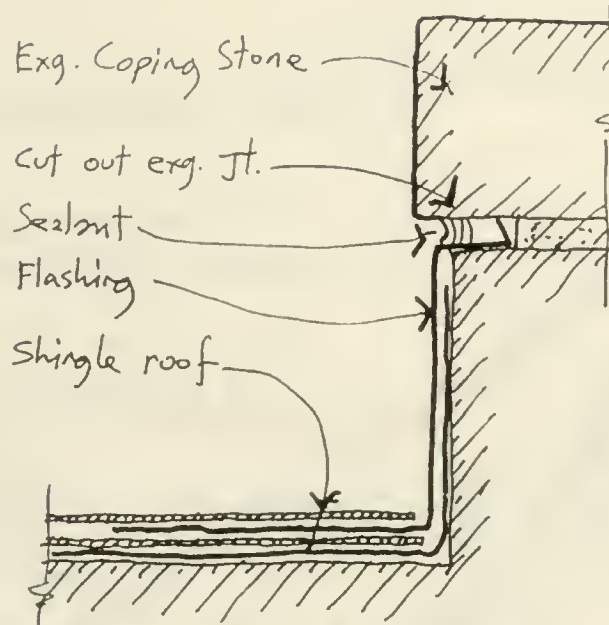 Exg. Coping Stone
Cut out exg. Jt.
Sealant
Flashing
Shingle roof